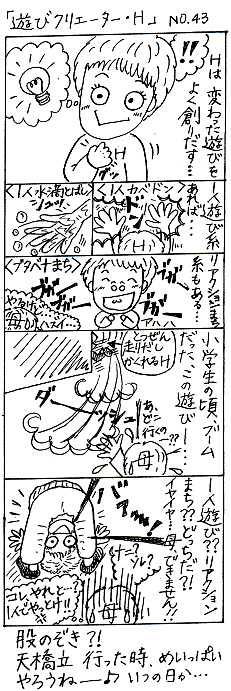 「遊びクリエーター・H」 NO.43
Hは変わった遊びを
よく創りだす…
!!
H
グッ
1人遊び系
あれば…
<1人カベドン>
ドン
(H)
<1人水滴とばし>
リアクションまち
系もある…
<ブタバナまち>
ブガ
ブガ
アハハ
母
小学生の頃、ブーム
だった、この遊びー…
とつぜん
走りだし
かくれるH
ダーッシュ
あっ
どこ
行くの
??
母
1人遊び??リアクション
まち??どっちだ?!
イヤイヤ…母、できません!!
けー?
ソレ?
母
コレ、やれっと…
1人でやっとけ!!
股のぞき?!
天橋立 行った時、めいっぱい
やろうねー♪ いつの日か…